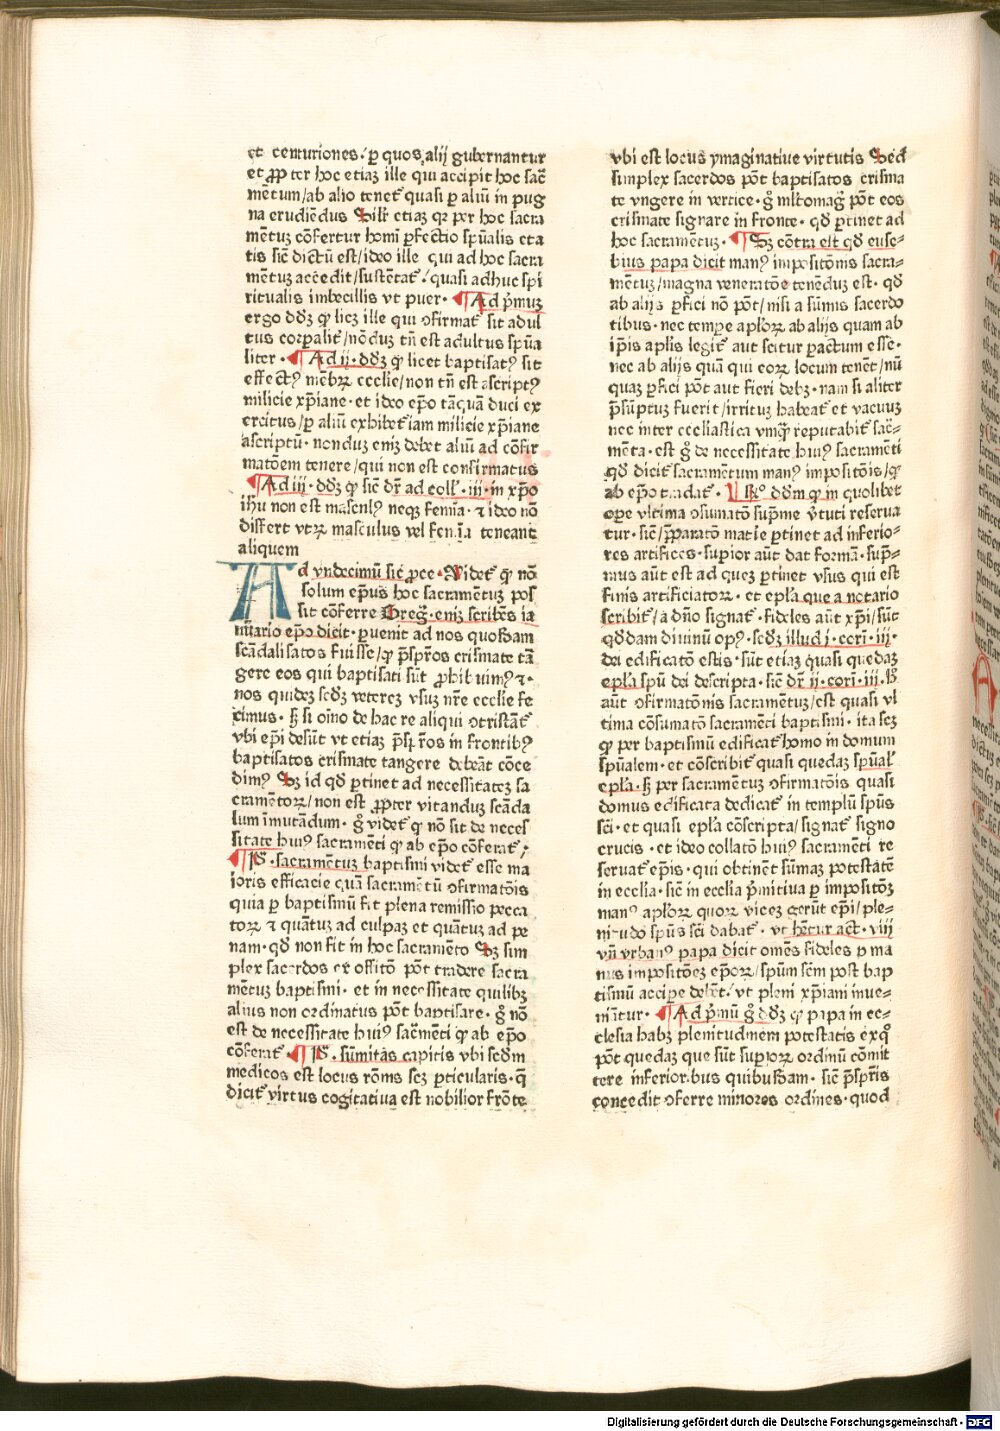 et centuriones / ꝑ quos alij gubernantur
et ꝓpter hoc etiaꝫ ille qui accipit hoc sac̄
mētum / ab alio tenet᷑ quasi ꝑ aliū in pug
na erudiēdus Silr̄ etiaꝫ qꝫ per hoc sacra
mētuꝫ cōfertur homī ꝑfectio spūalis eta
tis sic̄ dictū est / ideo ille qui ad hoc sacra
mētuꝫ accedit / sustētat᷑ / quasi adhuc spi
ritualis imbecillis vt puer · ¶ Ad p̄muꝫ
ergo dōꝫ ꝙ licꝫ ille qui ꝯfirmat᷑ sit adul
tus corꝑalit᷑ / nōduꝫ tn̄ est adultus spūa
liter · ¶ Ad ij · dōꝫ ꝙ licet baptisatꝰ sit
effectꝰ mēbꝝ ecclīe / non tn̄ est ascriptꝰ
milicie xp̄iane · et ideo ep̄o tāꝗuā duci ex
ercitus / ꝑ aliū exhibet᷑ iam milicie xp̄iane
ascriptū · nonduꝫ eniꝫ debet aliū ad cōfir
matōem tenere / qui non est confirmatus
¶ Ad iij · dōꝫ ꝙ sic̄ dr̄ ad coll' · iij · in xp̄o
ihū non est masculꝰ neqꝫ femīa · ⁊ ideo nō
differt vtꝝ masculus vel femīa teneant
aliquem
Ad vndecimū sic̄ ꝓcedit᷑ · Videt᷑ ꝙ nō
solum ep̄us hoc sacramētuꝫ pos
sit cōferre Greg̉ · eniꝫ scribēs ia
nuario ep̄o dicit · ꝑuenit ad nos quosdam
scādalisatos fuisse / ꝙ p̄spr̄os crismate tā
gere eos qui baptisati sūt ꝓhibuimꝰ ⁊ ·
nos quideꝫ sc̄dꝫ vetereꝫ vsuꝫ nr̄e ecclie fe
cimus · sꝫ si oīno de hac re aliqui ꝯtristāt᷑
vbi ep̄i desūt vt etiaꝫ p̄spr̄os in frontibꝰ
baptisatos crismate tangere debeāt cōce
dimꝰ Sꝫ id qd̄ ꝑtinet ad necessitateꝫ sa
cramētoꝝ / non est ꝓpter vitanduꝫ scāda
lum īmutādum · g̊ videt᷑ ꝙ nō sit de neces
sitate huiꝰ sacramēti ꝙ ab ep̄o cōferat᷑ ·
¶ P̄ · sacramētuꝫ baptismi videt᷑ esse ma
ioris efficacie quā sacramētū ꝯfirmatōis
quia ꝑ baptismū fit plena remissio pecca
toꝝ ⁊ quātuꝫ ad culpaꝫ et quātuꝫ ad pe
nam · qd̄ non fit in hoc sacramēto Sꝫ sim
plex sacerdos ex officō pōt tradere sacra
mētuꝫ baptismi · et in necessitate quilibꝫ
alius non ordinatus pōt baptisare · g̊ nō
est de necessitate huiꝰ sac̄mēti ꝙ ab ep̄o
cōferat᷑ · ¶ P̄ · sūmitas capitis vbi sc̄dm
medicos est locus rōnis scꝫ ꝑticularis · q̄
dicit᷑ virtus cogitatiua est nobilior frōte
vbi est locus ymaginatiue virtutis Sed
simplex sacerdos pōt baptisatos crisma
te vngere in vertice · g̊ ml̄tomag̊ pōt eos
crismate signare in fronte · qd̄ ꝑtinet ad
hoc sacramētuꝫ · ¶ Sꝫ cōtra est qd̄ euse⸗
bius papa dicit manꝰ impositōnis sacra⸗
mētuꝫ / magna veneratōe tenēduꝫ est · qd̄
ab alijs ꝑfici nō pōt / nisi a sūmis sacerdo
tibus · nec tempe aploꝝ ab alijs quam ab
ip̄is aplīs legit᷑ aut scitur ꝑactum esse ·
nec ab alijs quā qui eoꝝ locum tenēt / nū
quaꝫ ꝑfici pōt aut fieri debꝫ · nam si aliter
p̄sūptuꝫ fuerit / irrituꝫ habeat᷑ et vacuuꝫ
nec inter ecclīastica vmqꝫ reputabit᷑ sac̄⸗
mēta · est g̊ de necessitate huiꝰ sacramēti
qd̄ dicit᷑ sacramētum manꝰ impositōis / ꝙ
ab ep̄o tradat᷑ · ¶ Rn̄o dōm ꝙ in quolibet
oꝑe vltima ꝯsumatō sup̄me v̄tuti reserua
tur · sic̄ / p̄paratō mat̄ie ꝑtinet ad inferio⸗
res artifices · suꝑior aūt dat formā · sup̄⸗
mus aūt est ad queꝫ ꝑtinet vsus qui est
finis artificiatoꝝ · et epl̄a que a notario
scribit᷑ / a dn̄o signat᷑ · fideles aūt xp̄i / sūt
qd̄dam diuinū opꝰ · sc̄dꝫ illud j · cori · iij ·
dei edificatō estis · sūt etiaꝫ quasi quedaꝫ
epl̄a spū dei descripta · sic̄ dr̄ ij · cori · iij · H̄
aūt ꝯfirmatōnis sacramētuꝫ / est quasi vl
tima cōsumatō sacramēti baptismi · ita scꝫ
ꝙ per baptismū edificat᷑ homo in domum
spūalem · et cōscribit᷑ quasi quedaꝫ spūal'
epl̄a · sꝫ per sacramētuꝫ ꝯfirmatōis quasi
domus edificata dedicat᷑ in templū spūs
sc̄i · et quasi epl̄a cōscripta / signat᷑ signo
crucis · et ideo collatō huiꝰ sacramēti re
seruat᷑ ep̄is · qui obtinēt sūmaꝫ potestatē
in ecclīa · sic̄ in ecclīa p̄mitiua ꝑ impositōꝫ
manꝰ aploꝝ quoꝝ viceꝫ gerūt ep̄i / ple⸗
nitudo spūs sc̄i dabat᷑ · vt hētur act · viij
vn̄ vrbanꝰ papa dicit omēs fideles ꝑ ma
nus impositōeꝫ ep̄oꝝ / spūm scm̄ post bap
tismū accipe debēt / vt pleni xp̄iani inue⸗
niātur · ¶ Ad p̄mū g̊ dōꝫ ꝙ papa in ec⸗
clesia habꝫ plenitudinem potestatis ex q̊
pōt quedaꝫ que sūt suꝑioꝝ ordinū cōmit
tere inferioribus quibusdam · sic̄ p̄spr̄is
concedit ꝯferre minores ordines · quod
Digitalisierung gefördert durch die Deutsche Forschungsgemeinschaft - DFG